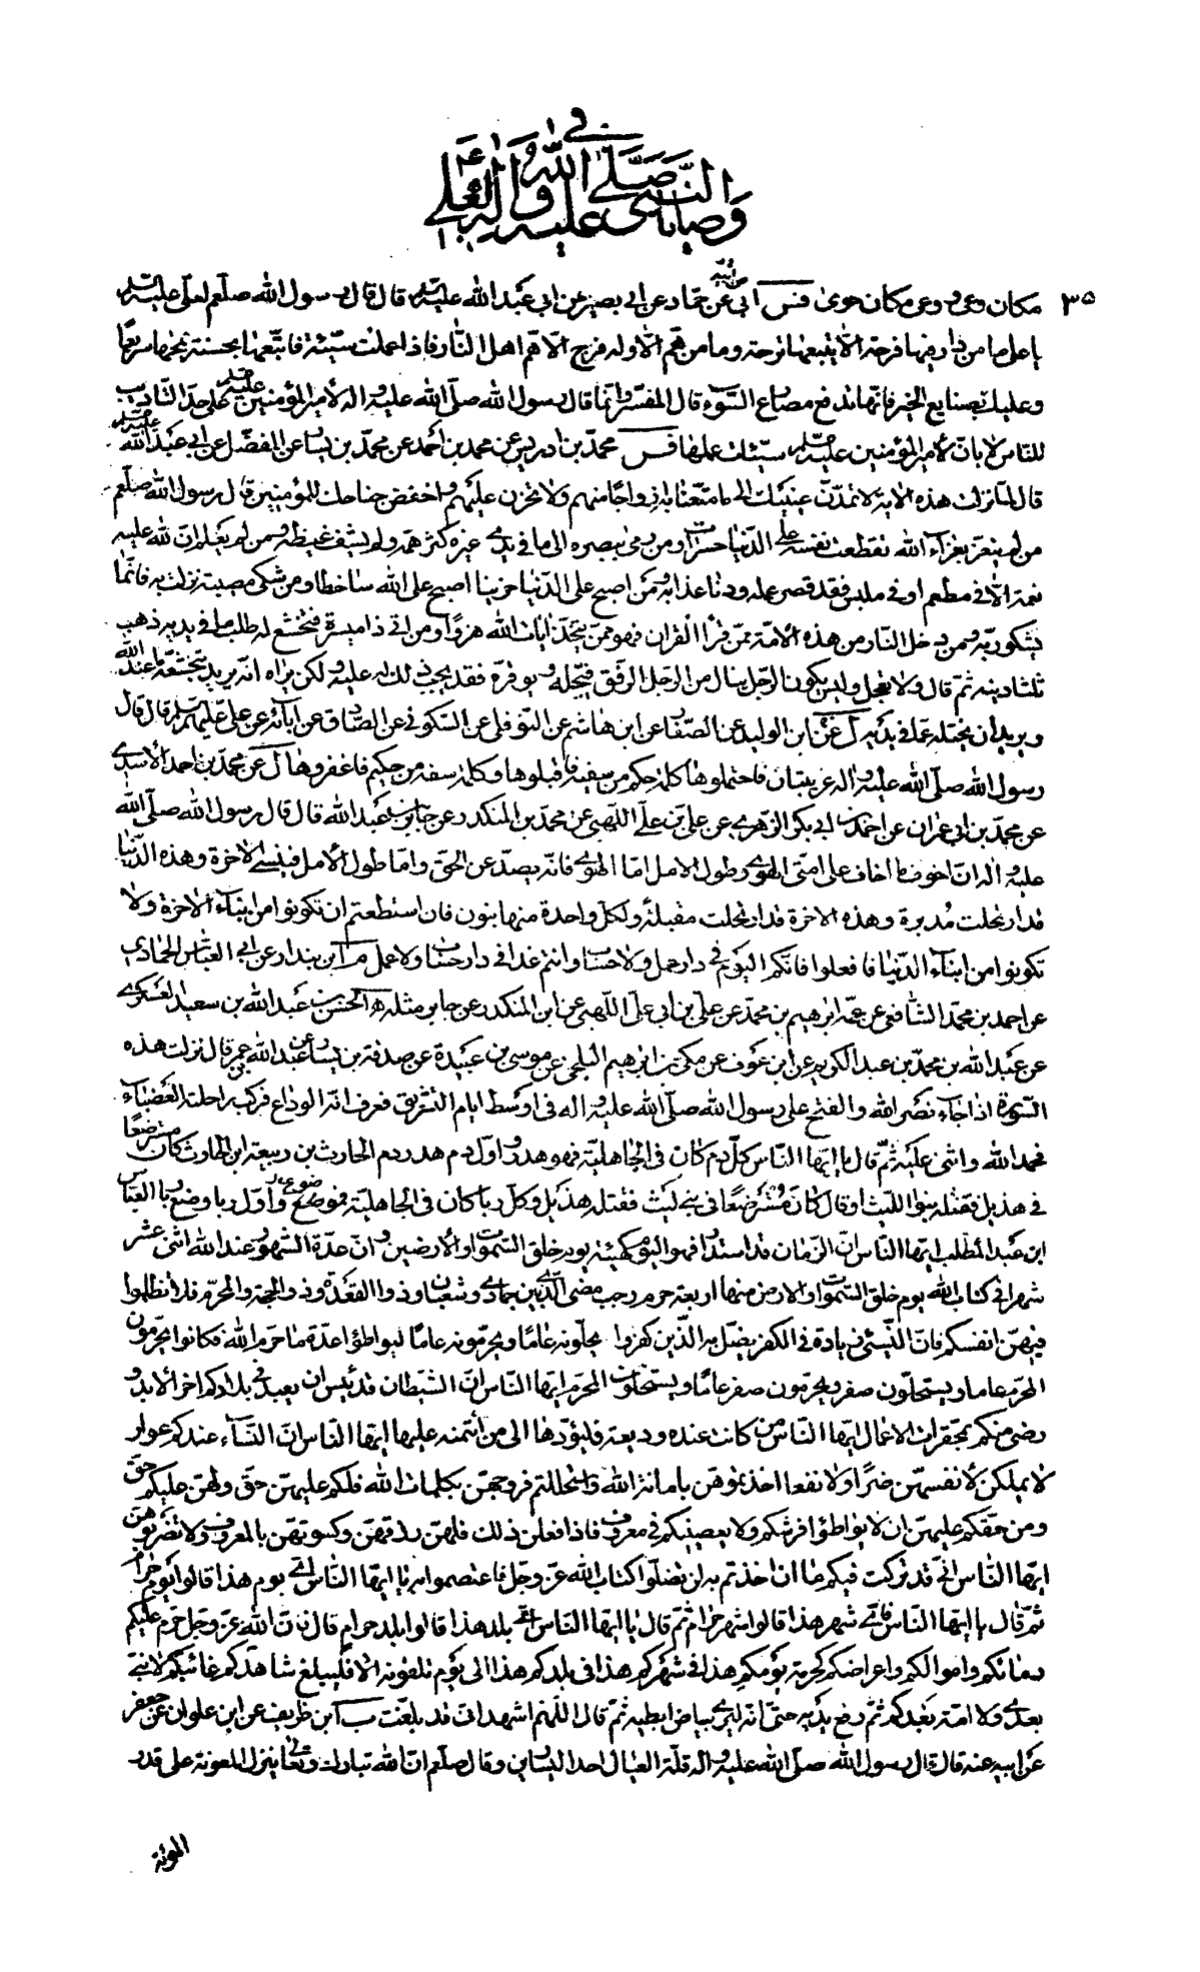 في
وصايا النبي صلى الله عليه وآله العلي
٣٥ مكان وعي وعن مكان حوى فس أبي عن حماد عن أبي بصير عن أبي عبد الله عليه السلم قال قال رسول الله صلعم لعلي عليه السلم
يا علي ما من دار فيها فرحة الا يتبعها ترحة وما من هم الا وله فرج الا هم اهل النار فاذا عملت سيئة فاتبعها بحسنة تمحها سريعا
وعليك بصنايع الخير فانها تدفع مصارع السوء قال المفسر وانما قال رسول الله صلى الله عليه واله لأمير المؤمنين عليه السلم على حد التاديب
للناس لا بان لأمير المؤمنين عليه السلم سيئات عملها فس محمد بن ادريس عن محمد بن احمد عن محمد بن يسار عن المفضل عن ابي عبد الله عليه السلم
قال لما نزلت هذه الاية لا تمدن عينيك الى ما متعنا به ازواجا منهم ولا تحزن عليهم واخفض جناحك للمؤمنين قال رسول الله صلعم
من لم يتعز بعزاء الله تقطعت نفسه على الدنيا حسرات ومن رمى ببصره الى ما في يدي غيره كثر همه ولم يشف غيظه ومن لم يعلم ان لله عليه
نعمة الا في مطعم او في ملبس فقد قصر عمله ودنا عذابه ومن اصبح على الدنيا حزينا اصبح على الله ساخطا ومن شكى مصيبة نزلت به فانما
يشكو ربه ومن دخل النار من هذه الأمة ممن قرأ القران فهو ممن يتخذ ايات الله هزوا ومن اتى ذا ميسرة فتخشع له طلب ما في يديه ذهب
ثلثا دينه ثم قال ولا تعجل وليس يكون الرجل ينال من الرجل الرفق فيبجله ويوقره فقد يجب ذلك له عليه ولكن يراه انه يريد بتخشعه ما عند الله
ويريد ان يختله عما في يديه ل عن ابن الوليد عن الصفار عن ابن هاشم عن النوفلي عن السكوني عن الصادق عن ابائه عن علي عليهم السلم قال قال
رسول الله صلى الله عليه واله غريبتان فاحتملوها كلمة حكم من سفيه فاقبلوها وكلمة سفه من حكيم فاغفروها ل عن محمد بن احمد الأسدي
عن محمد بن ابي عمران عن احمد بن ابي بكر الزهري عن علي بن علي اللهبي عن محمد بن المنكدر عن جابر بن عبد الله قال قال رسول الله صلى الله
عليه واله ان اخوف ما اخاف على امتي الهوى وطول الامل اما الهوى فانه يصد عن الحق واما طول الأمل فينسي الاخرة وهذه الدنيا
قد ارتحلت مدبرة وهذه الاخرة قد ارتحلت مقبلة ولكل واحدة منها بنون فان استطعتم ان تكونوا من ابناء الاخرة ولا
تكونوا من ابناء الدنيا فافعلوا فانكم اليوم في دار عمل ولا حساب وانتم غدا في دار حساب ولا عمل ل ابن بندار عن ابي العباس الحمادي
عن احمد بن محمد الشافعي عن عمه ابرهيم بن محمد عن علي بن ابي علي اللهبي عن ابن المنكدر عن جابر مثله ل الحسن بن عبد الله بن سعيد العسكري
عن عبد الله بن محمد بن عبد الكريم عن ابن عوف عن مكي بن ابرهيم البلخي عن موسى بن عبيدة عن صدقة بن يسار عن عبد الله بن عمر قال نزلت هذه
السورة اذا جاء نصر الله والفتح على رسول الله صلى الله عليه واله في اوسط ايام التشريق فعرف انه الوداع فركب راحلته العضباء
فحمد الله واثنى عليه ثم قال يا ايها الناس كل دم كان في الجاهلية فهو هدر واول دم هدر دم الحارث بن ربيعة ابن الحارث كان مسترضعا
في هذيل فقتله بنو الليث او قال كان مسترضعا في بني ليث فقتله هذيل وكل ربا كان في الجاهلية فموضوع واول ربا وضع ربا العباس
ابن عبد المطلب ايها الناس ان الزمان قد استدار فهو اليوم كهيئة يوم خلق السموات والأرضين وان عدة الشهور عند الله اثنى عشر
شهرا في كتاب الله يوم خلق السموات والارض منها اربعة حرم رجب مضر الذي بين جمادى وشعبان وذو القعدة وذو الحجة والمحرم فلا تظلموا
فيهن انفسكم فان النسيء زيادة في الكفر يضل به الذين كفروا يحلونه عاما ويحرمونه عاما ليواطؤا عدة ما حرم الله فكانوا يحرمون
المحرم عاما ويستحلون صفر ويحرمون صفر عاما ويستحلون المحرم ايها الناس ان الشيطان قد يئس ان يعبد في بلادكم اخر الأبد و
رضي منكم بمحقرات الاعمال ايها الناس من كانت عنده وديعة فليؤدها الى من ائتمنه عليها ايها الناس ان النساء عندكم عوار
لا يملكن لأنفسهن ضرا ولا نفعا اخذتموهن بامانة الله واستحللتم فروجهن بكلمات الله فلكم عليهن حق ولهن عليكم حق
ومن حقكم عليهن ان لا يواطؤا فرشكم ولا يعصينكم في معروف فاذا فعلن ذلك فلهن رزقهن وكسوتهن بالمعروف ولا تضربوهن
ايها الناس اني قد تركت فيكم ما ان اخذتم به لن تضلوا كتاب الله عز وجل فاعتصموا به يا ايها الناس اي يوم هذا قالوا يوم حرام
ثم قال يا ايها الناس فاي شهر هذا قالوا شهر حرام ثم قال يا ايها الناس اي بلد هذا قالوا بلد حرام قال فان الله عز وجل حرم عليكم
دماءكم واموالكم واعراضكم كحرمة يومكم هذا في شهركم هذا في بلدكم هذا الى يوم تلقونه الا فليبلغ شاهدكم غائبكم لا نبي
بعدي ولا امة بعدكم ثم رفع يديه حتى انه ليرى بياض ابطيه ثم قال اللهم اشهد اني قد بلغت ب ابن ظريف عن ابن علوان عن جعفر
عن ابيه عنه قال قال رسول الله صلى الله عليه واله قلة العيال احد اليسارين وقال صلعم ان الله تبارك وتعالى ينزل المعونة على قدر
المؤنة